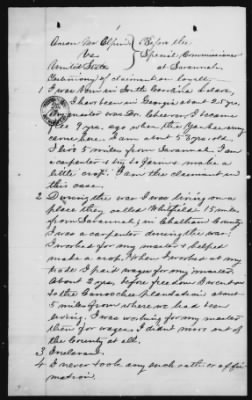 vs
United States
Before the
Special Commissioner
at Savannah
Testimony of claimant on loyalty
1 I was born in South Carolina a slave,
I have been in Georgia about 25 yrs.
My master was Dr. Cheever, I became
free 9 yrs ago when the Yankee army
came here. I am about 50 yrs old.
I live 5 miles from Savannah. I am
a carpenter & try to farm & make a
little crop. I am the claimant in
this case.
2 During the war I was living on a
place they called Whitfield 15 miles
from Savannah, in Chatham County
I was a carpenter during the war.
I worked for my master & helped
make a crop. When I worked at my
trade I paid wages for my master.
About 2 yrs before freedom I went on
to the plantation about
5 miles from where we had been
living. I was working for my master
then for wages. I didn't move out of
the County at all.
3 
4 I never took any such oath or affir
mation.